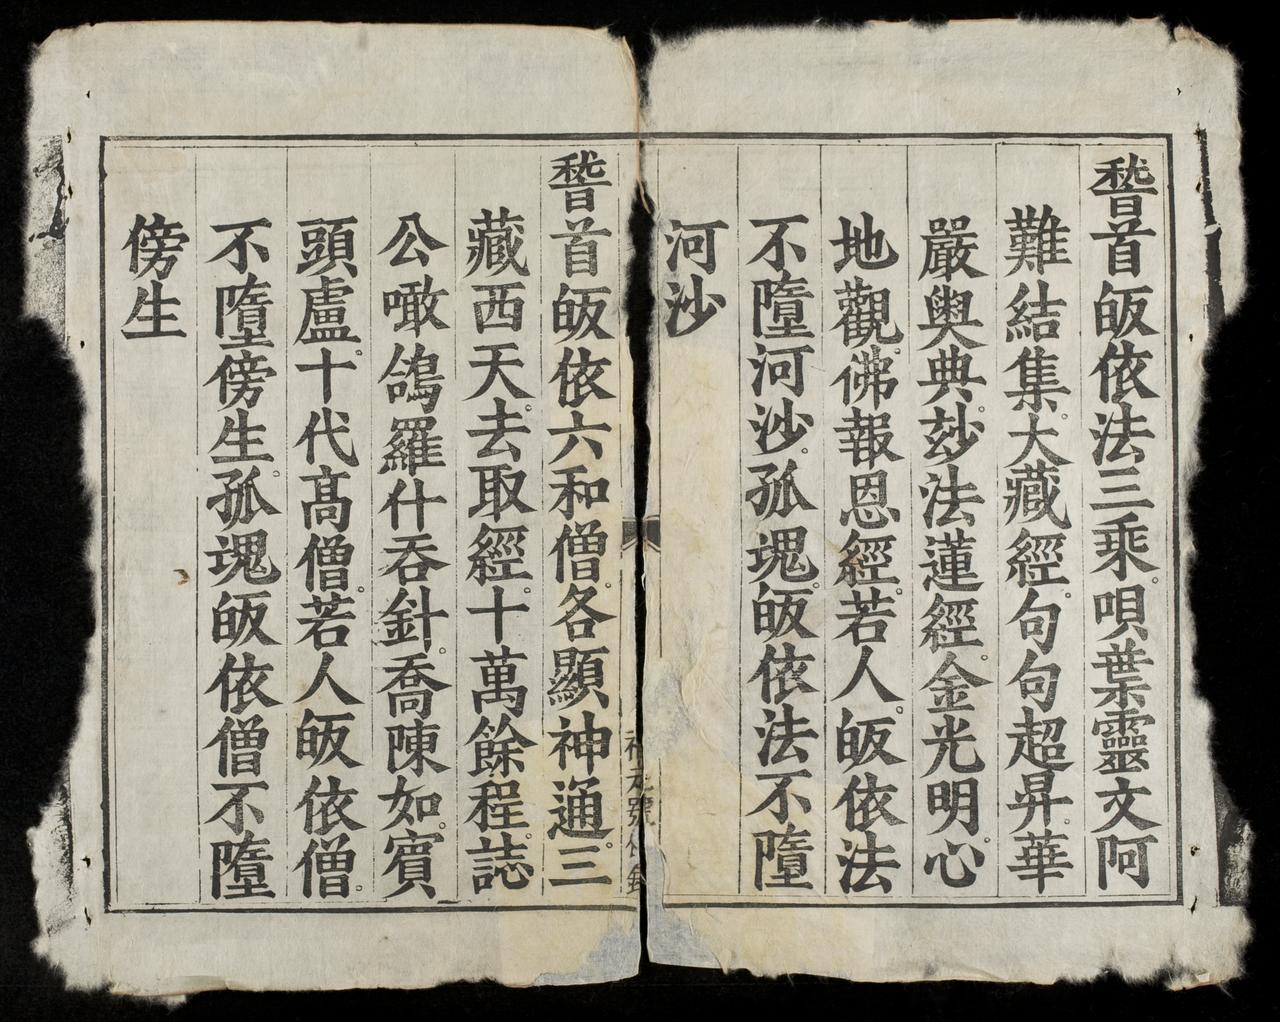 稽首皈依法三乘。唄葉靈文阿
難結集。大藏經。句句超昇。華
嚴奥典。玅法蓮經。金光明。心
地觀。佛報恩經。若人。皈依法
不墮河沙。孤塊皈依法不墮
河沙
稽首皈依六和僧。各顯神通。三
藏西天。去取經。十萬餘程。誌
公噉鴿。羅什吞針。喬陳如。賓
頭盧。十代髙僧。若人皈依僧。
不墮傍生。孤塊皈依僧不墮
傍生